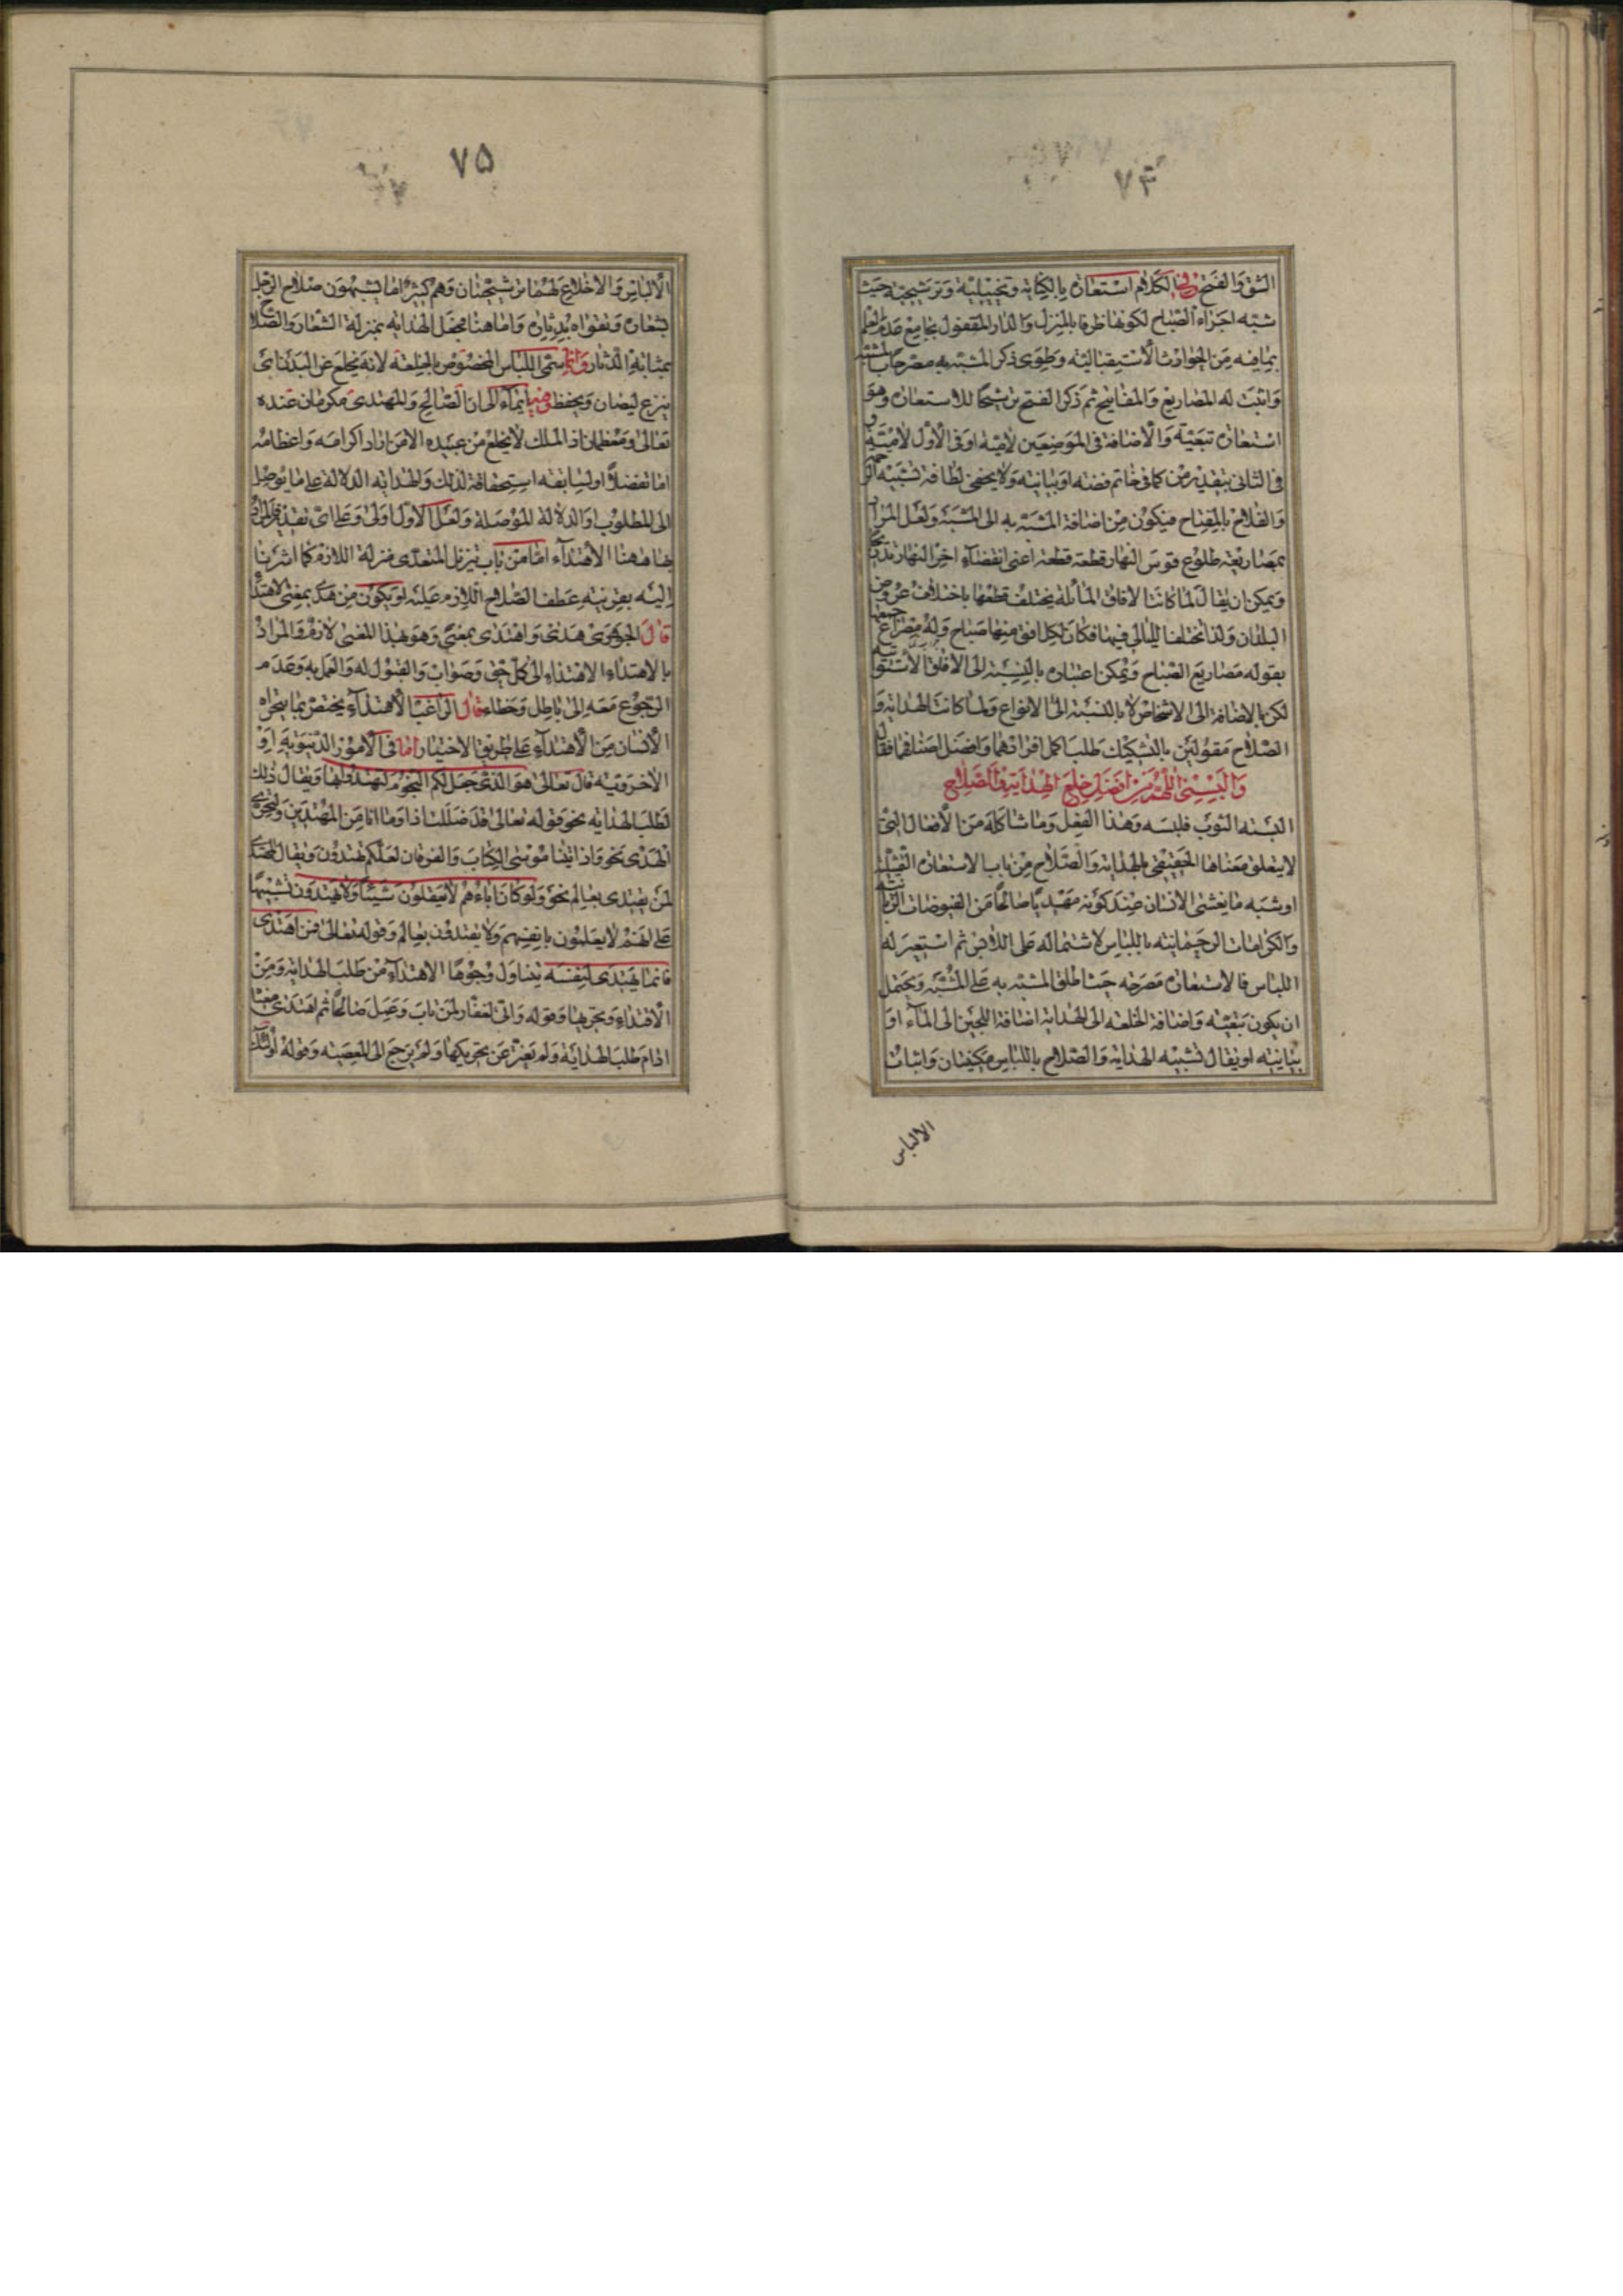 ٧٤
الشق والفتح وفي الكلام استعارة بالكناية وتخييلية وترشيحية حيث
شبه اجزاء الصباح لكونها ظرفا بالمنزل والدار المقفول بجامع عدم العلم
بما فيه من الحوادث الاستقبالية وطوى ذكر المشبه به مصرحا بالمشبه
واثبت له المصاريع والمفاتيح ثم ذكر الفتح ترشيحا للاستعارة وهو
استعارة تبعية والاضافة في الموضعين لامية او في الاول لامية و
في الثاني بتقدير من كما في خاتم فضة او بيانية ولا يخفى لطافة تشبيه الرحمة
والفلاح بالمفتاح فيكون من اضافة المشبه به الى المشبه ولعل المراد
بمصاريعه طلوع قوس النهار قطعة قطعة اعنى انقضاء اخر النهار تدريجا
ويمكن ان يقال لما كانت الافاق المائلة يختلف قطعها باختلاف عروض
البلدان ولذا تختلف الليالي فيها فكان لكل افق منها صباح وله مصراع جمعها
بقوله مصاريع الصباح ويمكن اعتباره بالنسبة الى الافاق الاستوائية
لكن بالاضافة الى الاشخاص لا بالنسبة الى الانواع ولما كانت الهداية و
الصلاح مقولين بالتشكيك طلب اكمل افرادهما وافضل اصنافهما فقال
وَاَلْبِسْنِي اللّٰهُمَّ مِنْ اَفْضَلِ خِلَعِ الْهِدَايَةِ وَالصَّلَاحِ
البسه الثوب فلبسه وهذا الفعل وما شاكله من الافعال التي
لا يتعلق معناها الحقيقي بالهداية والصلاح من باب الاستعارة التمثيلية
او شبه ما يغشى الانسان عند كونه مهتديا صالحا من الفيوضات الربانية
والكرامات الرحمانية باللباس لاشتماله على اللابس ثم استعير له
اللباس فالاستعارة مصرحة حيث اطلق المشبه به على المشبه ويحتمل
ان يكون تبعية واضافة الخلعة الى الهداية اضافة اللجين الى الماء او
بيانية او يقال تشبيه الهداية والصلاح باللباس مكنيتان واثبات
الالباس
٧٥
الالباس والاخلاع لهما ترشيحتان وهم كثيرا ما يشبهون صلاح الرجل
بشعاره وتقواه بدثاره واما هنا فجعل الهداية بمنزلة الشعار والصلاح
بمثابة الدثار وانما سمى اللباس المخصوص بالخلعة لانه يخلع عن البدن اى
ينزع ليصان ويحفظ وفيه ايماء الى ان الصالح والمهتدى مكرمان عنده
تعالى ومعظمان اذ الملك لا يخلع من عبيده الا من اراد اكرامه واعظامه
اما تفضلا او لسابقة استحقاقه لذلك والهداية الدلالة على ما يوصل
الى المطلوب او الدلالة الموصلة ولعل الاول اولى وعلى اى تقدير فالمراد
بها هاهنا الاهتداء اما من باب تنزيل المتعدى منزلة اللازم كما اشرنا
اليه بقرينة عطف الصلاح اللازم عليه او يكون من هدى بمعنى الاهتداء
قال الجوهرى هدى واهتدى بمعنى وهو بهذا المعنى لازم والمراد
بالاهتداء الاهتداء الى كل حق وصواب والقبول له والعمل به وعدم
الرجوع معه الى باطل وخطاء قال الراغب الاهتداء يختص بما يتحراه
الانسان من الاهتداء على طريق الاختيار اما في الامور الدنيوية او
الاخروية قال تعالى هو الذى جعل لكم النجوم لتهتدوا بها ويقال ذلك
لطلب الهداية نحو قوله تعالى قد ضللت اذا وما انا من المهتدين ولتحرى
الهدى نحو واذ اتينا موسى الكتاب والفرقان لعلكم تهتدون ويقال المهتدى
لمن يقتدى بعالم نحو ولو كان اباءهم لا يعقلون شيئا ولا يهتدون تنبيها
على انهم لا يعلمون بانفسهم ولا يقتدون بعالم وقوله تعالى فمن اهتدى
فانما يهتدى لنفسه يتناول وجوها الاهتداء من طلب الهداية ومن
الاقتداء وتحريها وقوله وانى لغفار لمن تاب وعمل صالحا ثم اهتدى معناه
ادام طلب الهداية ولم يفتر عن تحريكها ولم يرجع الى المعصية وقوله اولئك